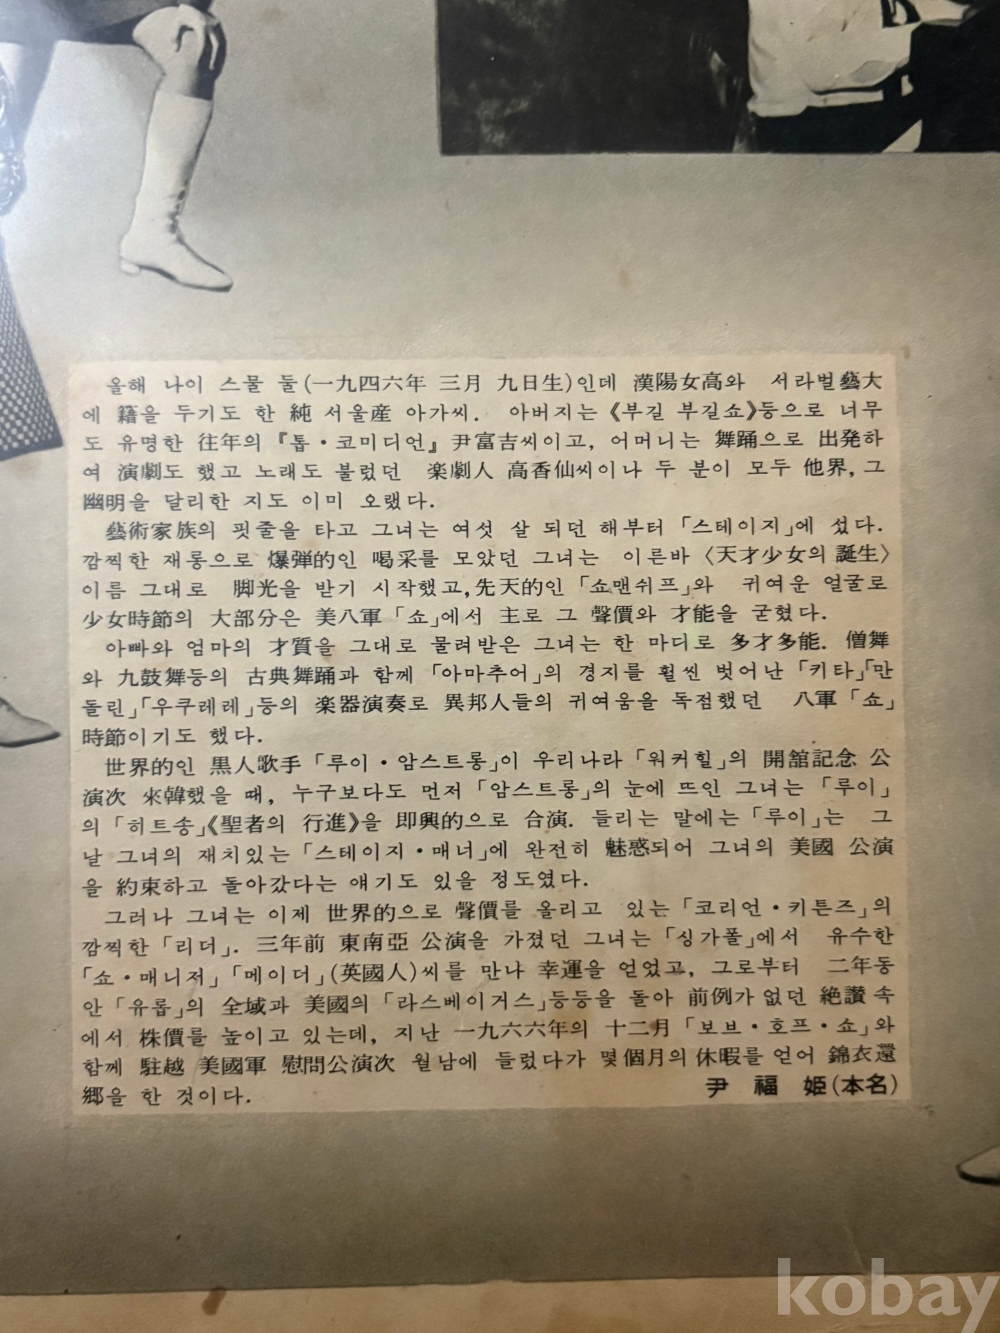 올해 나이 스물 둘(一九四六年 三月 九日生)인데 漢陽女高와 서라벌藝大
에 籍을 두기도 한 純 서울産 아가씨. 아버지는《부길 부길쇼》등으로 너무
도 유명한 往年의『톱·코미디언』尹富吉씨이고, 어머니는 舞踊으로 出発하
여 演劇도 했고 노래도 불렀던 楽劇人 高香仙씨이나 두 분이 모두 他界, 그
幽明을 달리한 지도 이미 오랬다.
藝術家族의 핏줄을 타고 그녀는 여섯 살 되던 해부터「스테이지」에 섰다.
깜찍한 재롱으로 爆弾的인 喝采를 모았던 그녀는 이른바〈天才少女의 誕生〉
이름 그대로 脚光을 받기 시작했고, 先天的인「쇼맨쉬프」와 귀여운 얼굴로
少女時節의 大部分은 美八軍「쇼」에서 主로 그 聲價와 才能을 굳혔다.
아빠와 엄마의 才質을 그대로 물려받은 그녀는 한 마디로 多才多能. 僧舞
와 九鼓舞등의 古典舞踊과 함께「아마추어」의 경지를 훨씬 벗어난「키타」「만
돌린」「우쿠레레」등의 楽器演奏로 異邦人들의 귀여움을 독점했던 八軍「쇼」
時節이기도 했다.
世界的인 黒人歌手「루이·암스트롱」이 우리나라「워커힐」의 開舘記念 公
演次 來韓했을 때, 누구보다도 먼저「암스트롱」의 눈에 뜨인 그녀는「루이」
의「히트송」《聖者의 行進》을 即興的으로 合演. 들리는 말에는「루이」는 그
날 그녀의 재치있는「스테이지·매너」에 완전히 魅惑되어 그녀의 美國 公演
을 約束하고 돌아갔다는 얘기도 있을 정도였다.
그러나 그녀는 이제 世界的으로 聲價를 올리고 있는「코리언·키튼즈」의
깜찍한「리더」. 三年前 東南亞 公演을 가졌던 그녀는「싱가폴」에서 유수한
「쇼·매니저」「메이더」(英國人)씨를 만나 幸運을 얻었고, 그로부터 二年동
안「유롭」의 全域과 美國의「라스베이거스」등등을 돌아 前例가 없던 絶讃 속
에서 株價를 높이고 있는데, 지난 一九六六年의 十二月「보브·호프·쇼」와
함께 駐越 美國軍 慰問公演次 월남에 들렀다가 몇個月의 休暇를 얻어 錦衣還
郷을 한 것이다.
尹 福 姫(本名)
kobay